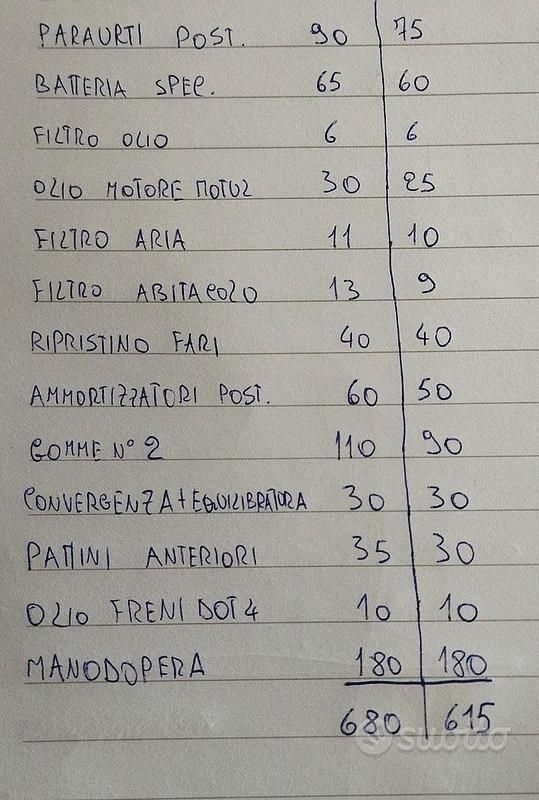 PARAURTI POST. 90 75
BATTERIA SPEC. 65 60
FILTRO OLIO 6 6
OLIO MOTORE MOTUL 30 25
FILTRO ARIA 11 10
FILTRO ABITACOLO 13 9
RIPRISTINO FARI 40 40
AMMORTIZZATORI POST. 60 50
GOMME N° 2 110 90
CONVERGENZA + EQUILIBRATURA 30 30
PATTINI ANTERIORI 35 30
OLIO FRENI DOT 4 10 10
MANODOPERA 180 180
680 615
subito